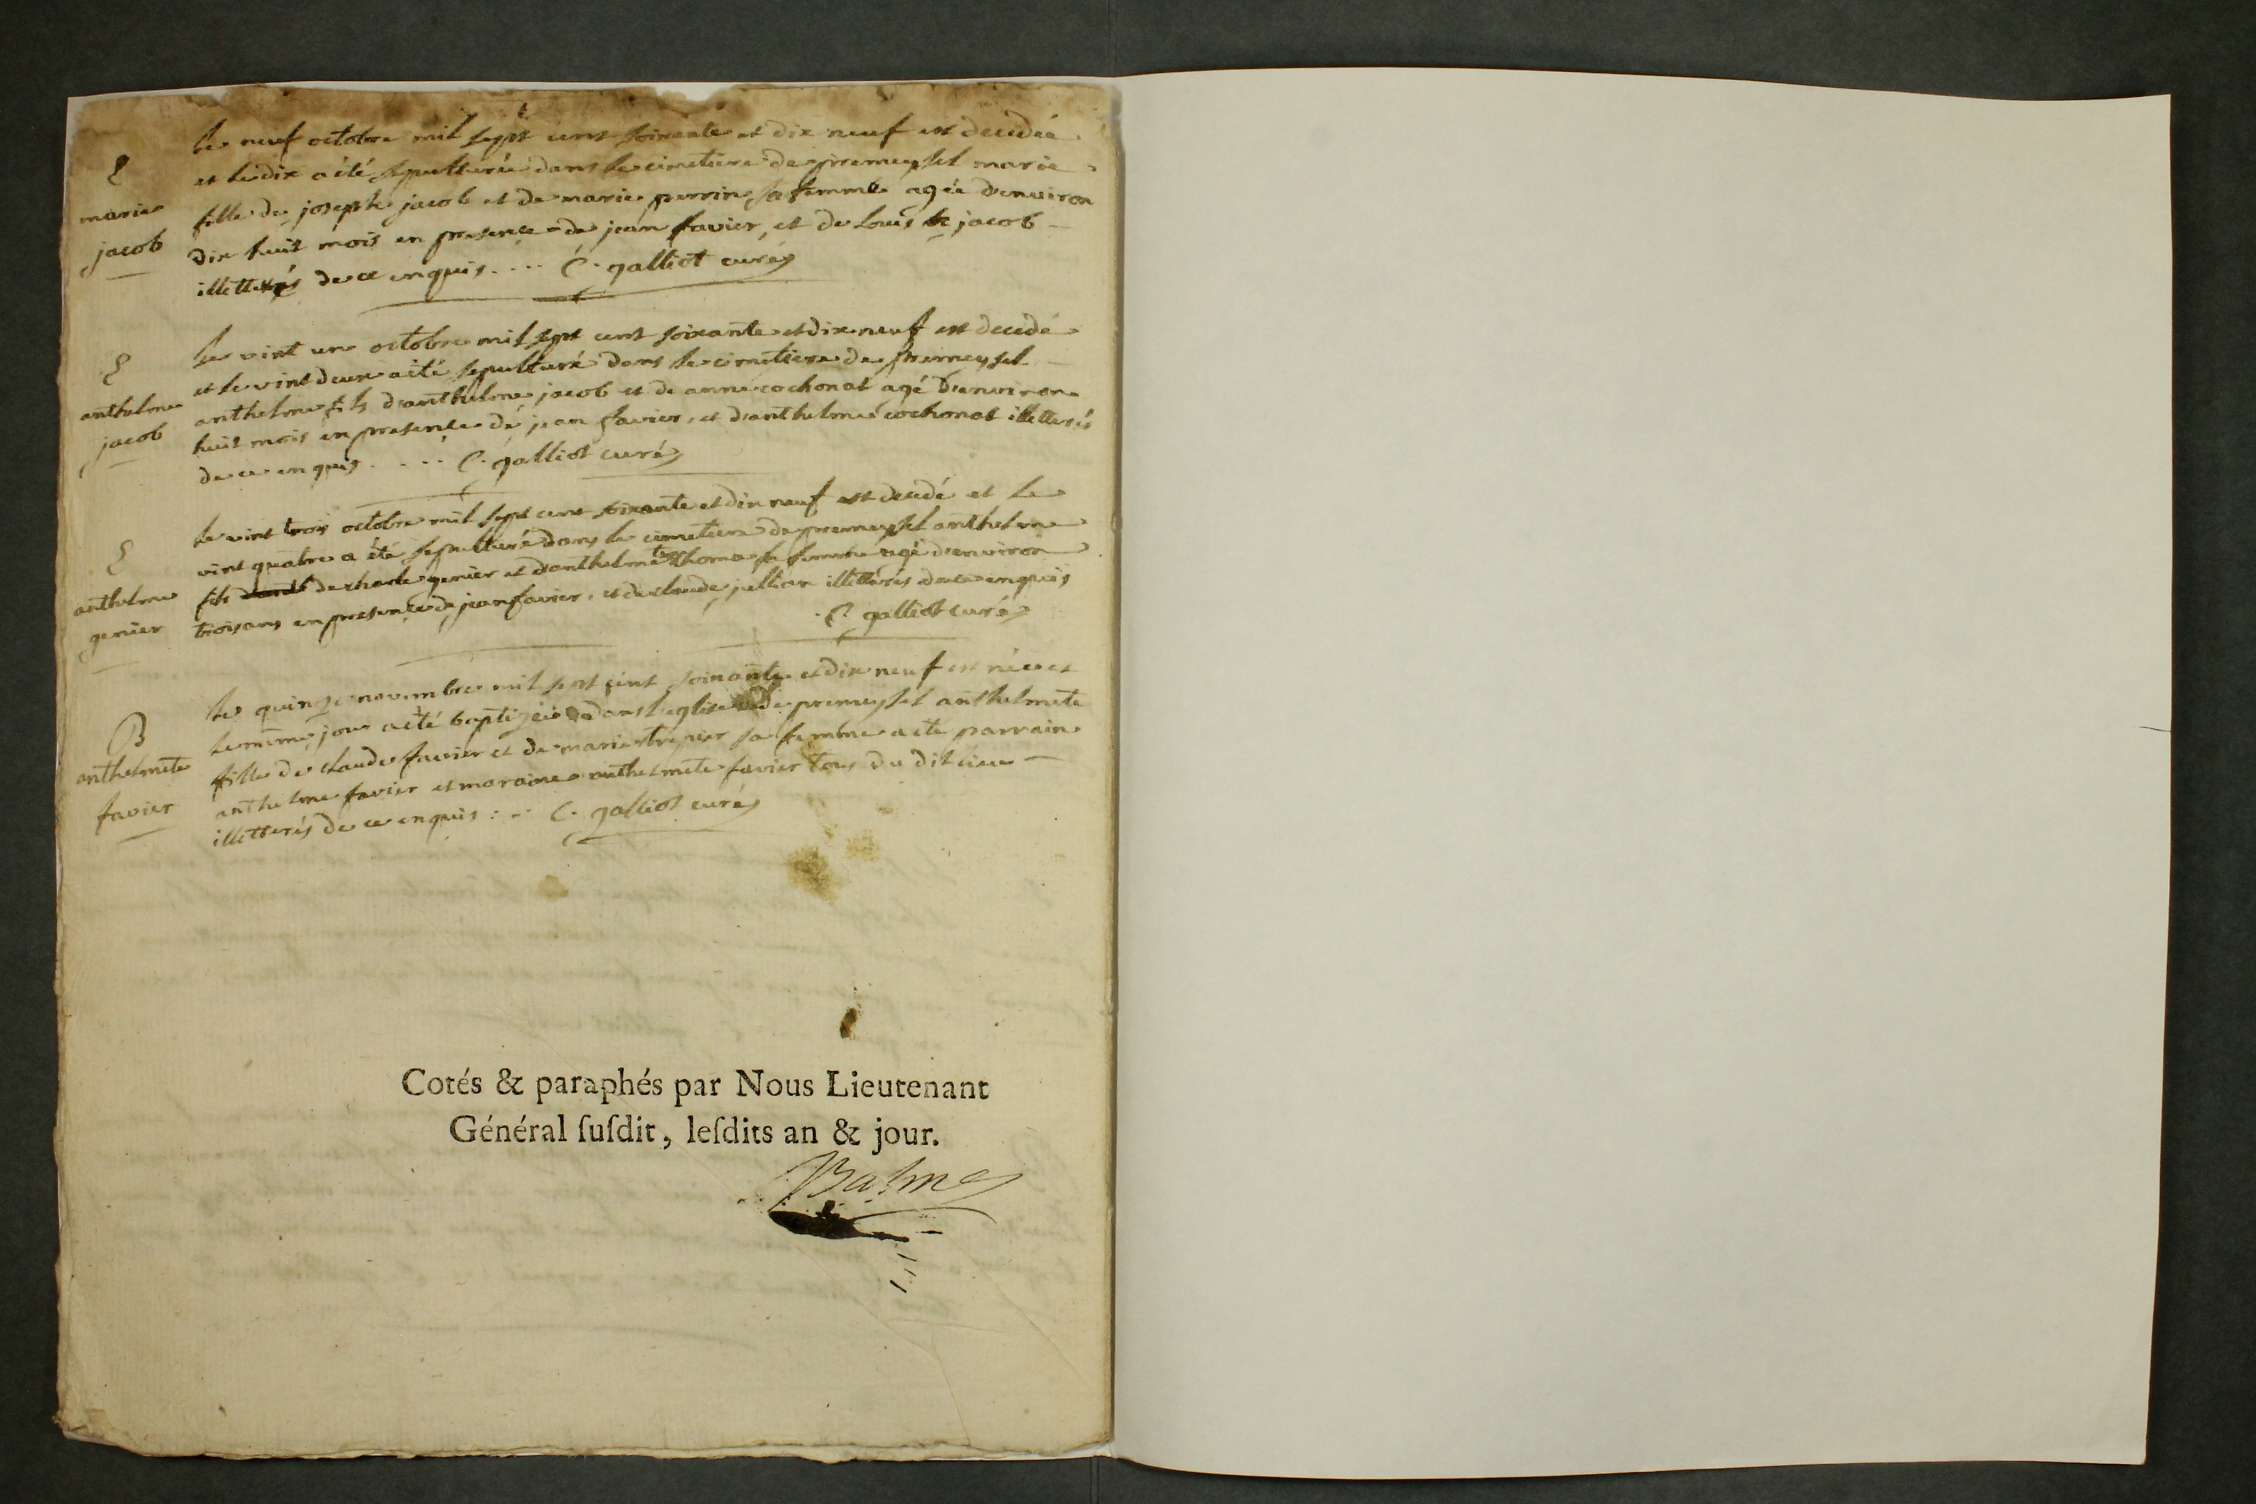 le neuf octobre mil sept cent soixante et dix neuf est decedée
et le dix a été sepulturée dans le cimetiere de premeysel marie
fille de joseph jacob et de marie perrin sa femme agée d'environ
dix huit mois en presence de jean favier, et de Louis jacob
illetterés de ce enquis.... C. galliot curé
E
marie
jacob
le vint un octobre mil sept cent soixante et dix neuf est decedé
et le vint deux a été sepulturé dans le cimetiere de premeysel
anthelme fils d'anthelme jacob et de anne cochonat agé d'environ
huit mois en presence de jean favier, et d'anthelme cochonat illetterés
de ce enquis..... C. galliot curé
E
anthelme
jacob
le vint trois octobre mil sept cent soixante et dix neuf est decedé et le
vint quatre a été sepulturé dans le cimetiere de premeysel anthelme
fils de charle genier et d'anthelmete thoma sa femme agé d'environ
trois ans en presence de jean favier, et de claude jullian illetterés de ce enquis
C. galliot curé
E
anthelme
genier
le quinze novembre mil sept cent soixante et dix neuf est née et
le même jour a été baptizée dans l'eglise de premeysel anthelmete
fille de claude favier et de marie trepier sa femme a été parrain
anthelme favier et maraine anthelmete favier tous du dit lieu
illetterés de ce enquis : .. C. galliot curé
B
anthelmete
favier
Cotés & paraphés par Nous Lieutenant
Général suſdit, leſdits an & jour.
Balme